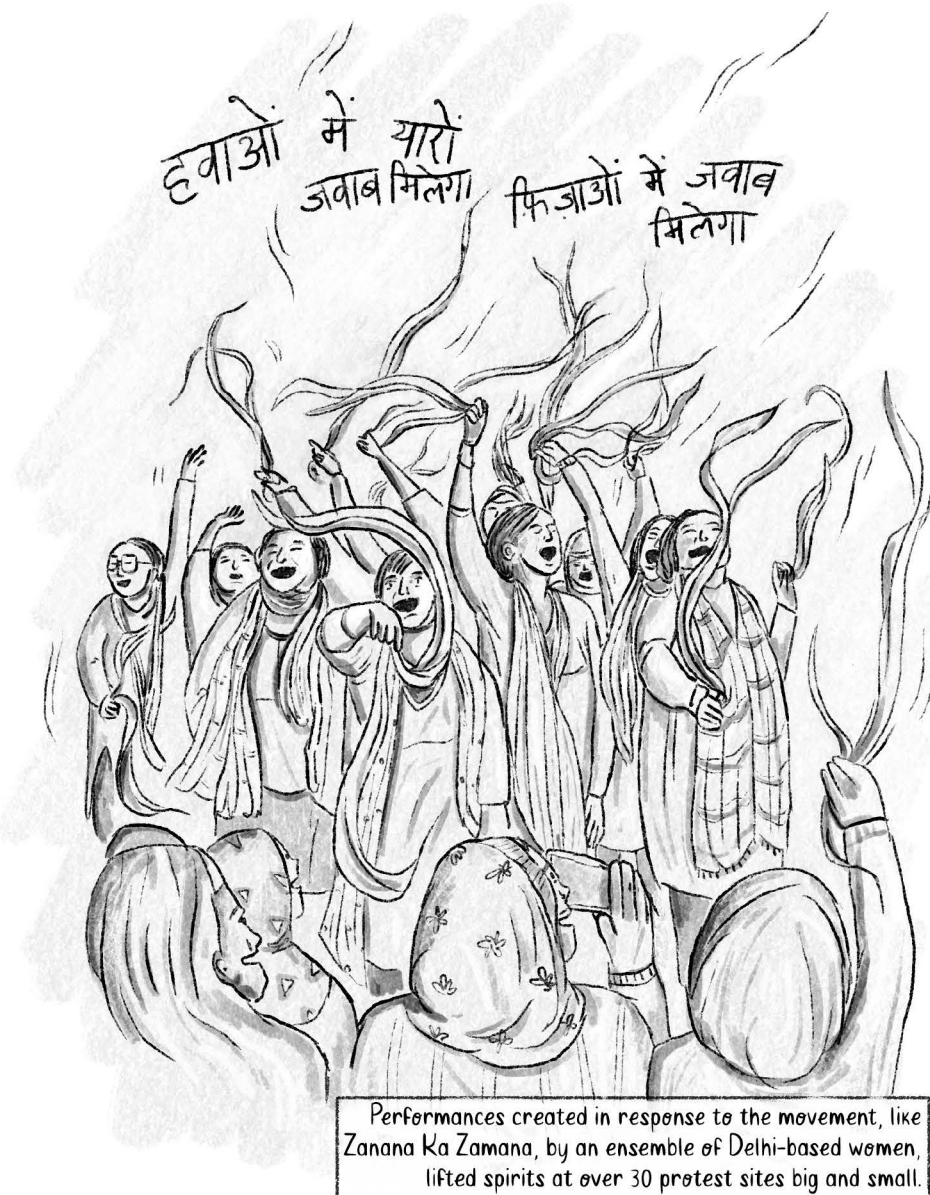 हवाओं में यारों
जवाब मिलेगा
फ़िज़ाओं में जवाब
मिलेगा
Performances created in response to the movement, like
Zanana Ka Zamana, by an ensemble of Delhi-based women,
lifted spirits at over 30 protest sites big and small.